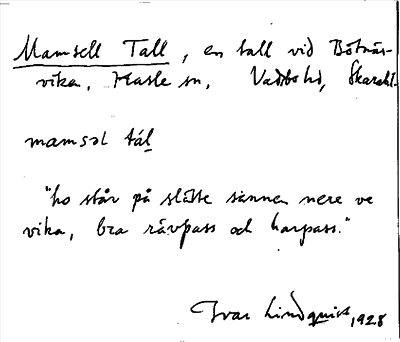 Mamsell Tall, en tall vid Bötnäs-
vika, Hasle sn, Vadsbo hd, Skarabl.
mamsəl tál
"ho står på slätte sännen nere ve
vika, bra rävpass och harpass."
Ivar Lindquist, 1928